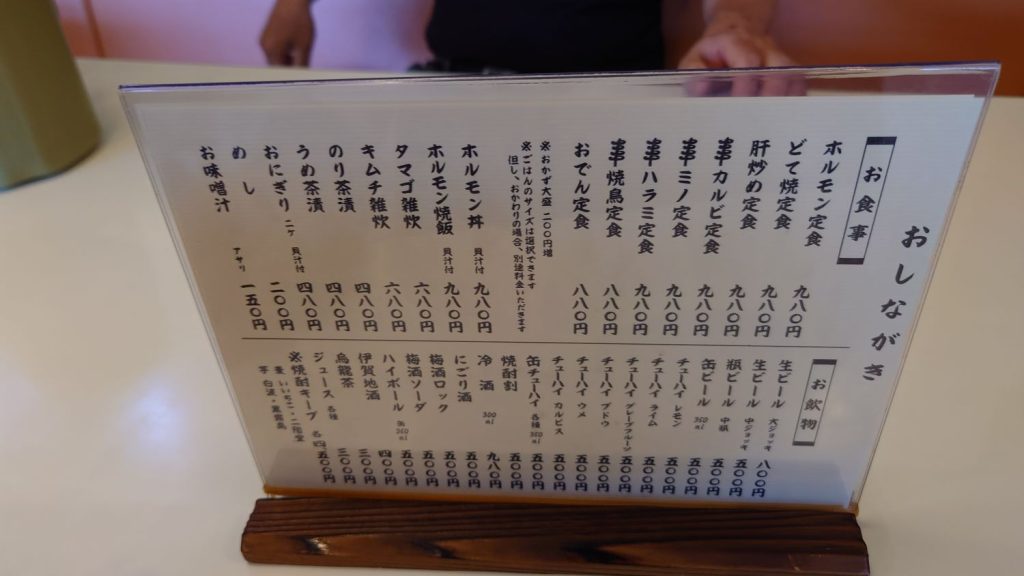 おしながき
お食事
ホルモン定食 九八〇円
どて焼定食 九八〇円
肝炒め定食 九八〇円
串カルビ定食 九八〇円
串ミノ定食 九八〇円
串ハラミ定食 九八〇円
串焼鳥定食 八八〇円
おでん定食 八八〇円
※おかず大盛 二〇〇円増
※ごはんのサイズは選択できます
但し、おかわりの場合、別途料金いただきます
ホルモン丼 貝汁付 九八〇円
ホルモン焼飯 貝汁付 九八〇円
タマゴ雑炊 六八〇円
キムチ雑炊 六八〇円
のり茶漬 四八〇円
うめ茶漬 四八〇円
おにぎり 二ヶ 貝汁付 四八〇円
めし 二〇〇円
お味噌汁 アサリ 一五〇円
お飲物
生ビール 大ジョッキ 八〇〇円
生ビール 中ジョッキ 五〇〇円
瓶ビール 中瓶 五〇〇円
缶ビール 350ml 五〇〇円
チューハイ レモン 五〇〇円
チューハイ ライム 五〇〇円
チューハイ グレープフルーツ 五〇〇円
チューハイ ブドウ 五〇〇円
チューハイ ウメ 五〇〇円
チューハイ カルピス 五〇〇円
缶チューハイ 各種 350ml 五〇〇円
焼酎割 五〇〇円
冷酒 300ml 九八〇円
にごり酒 五〇〇円
梅酒ロック 五〇〇円
梅酒ソーダ 五〇〇円
ハイボール 缶350ml 五〇〇円
伊賀地酒 四〇〇円
烏龍茶 三〇〇円
ジュース 各種 三〇〇円
※焼酎キープ 各四五〇〇円
麦 いいちこ・二階堂
芋 白波・黒霧島